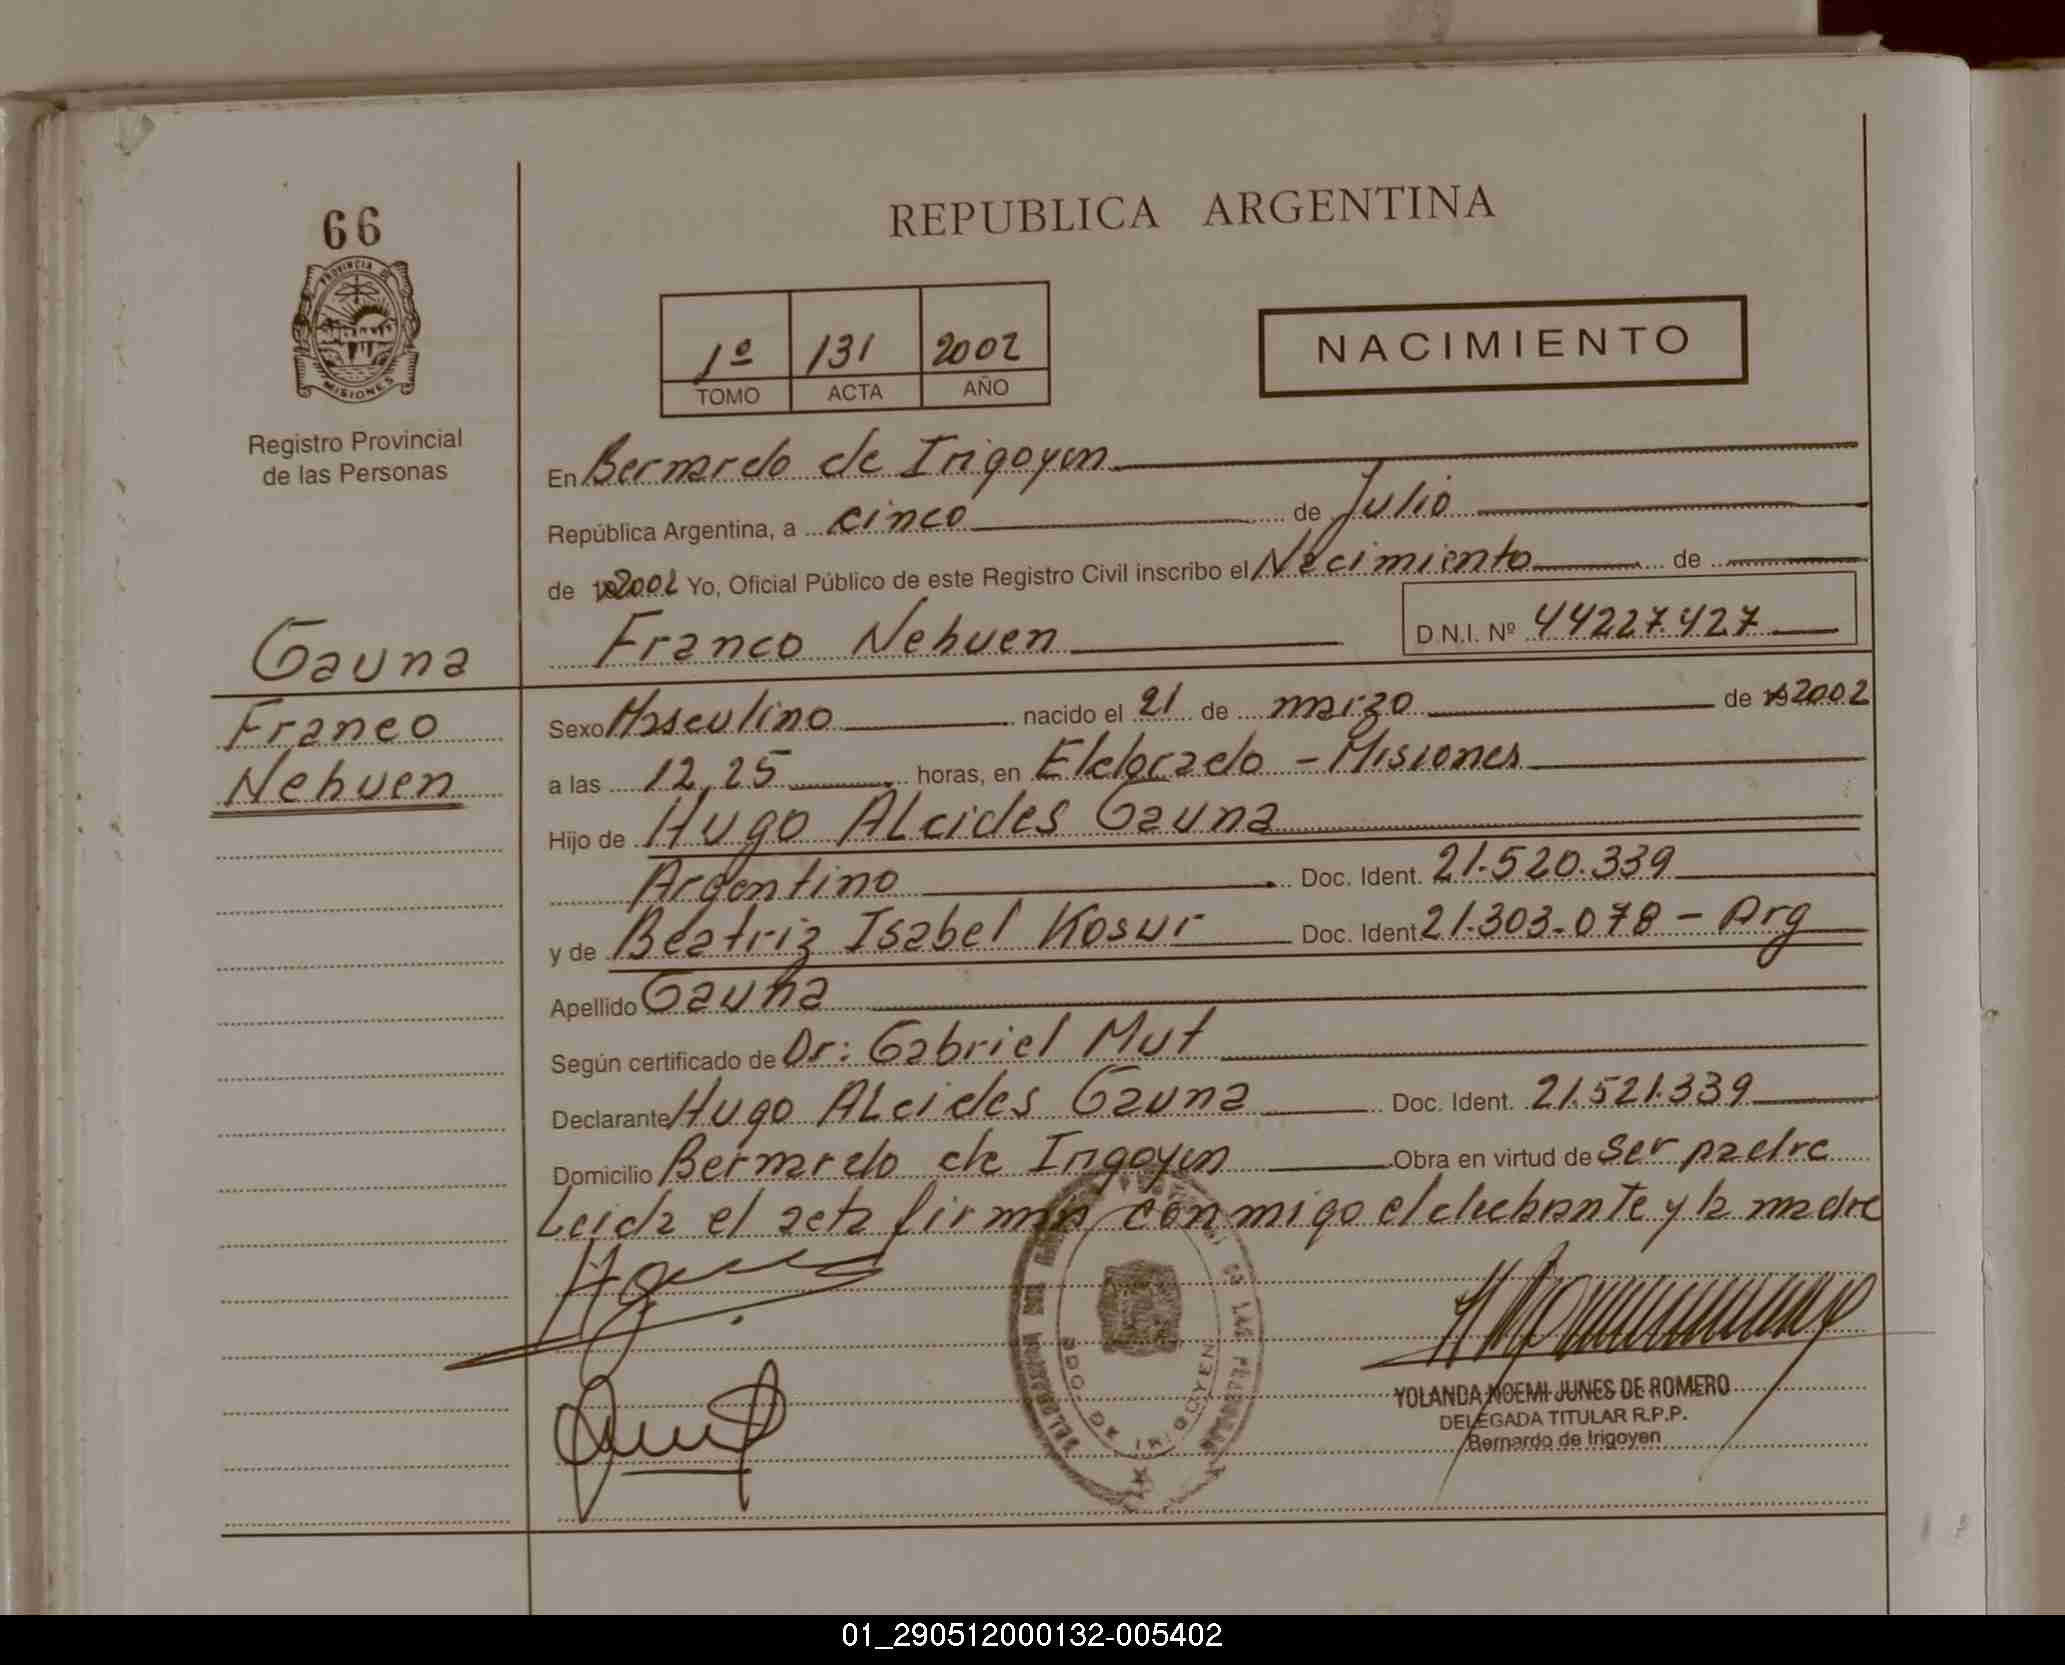 REPUBLICA ARGENTINA
66
PROVINCIA DE
MISIONES
Registro Provincial
de las Personas
1º 131 2002
TOMO ACTA AÑO
NACIMIENTO
En Bernardo de Irigoyen
República Argentina, a cinco de Julio
de 2002 Yo, Oficial Público de este Registro Civil inscribo el Nacimiento de
Franco Nehuen D.N.I. Nº 44227.427
Gauna
Franco
Nehuen
Sexo Masculino nacido el 21 de marzo de 192002
a las 12,25 horas, en Eldorado - Misiones
Hijo de Hugo ALcides Gauna
Argentino Doc. Ident. 21.520.339
y de Beatriz Isabel Kosur Doc. Ident 21.303.078 - Arg
Apellido Gauna
Según certificado de Dr: Gabriel Mut
Declarante Hugo ALcides Gauna Doc. Ident. 21.521.339
Domicilio Bernardo de Irigoyen Obra en virtud de Ser padre
Leida el acta firman conmigo el declarante y la madre
DE LAS PERSONAS
BDO. DE IRIGOYEN
YOLANDA NOEMI JUNES DE ROMERO
DELEGADA TITULAR R.P.P.
Bernardo de Irigoyen
01_290512000132-005402